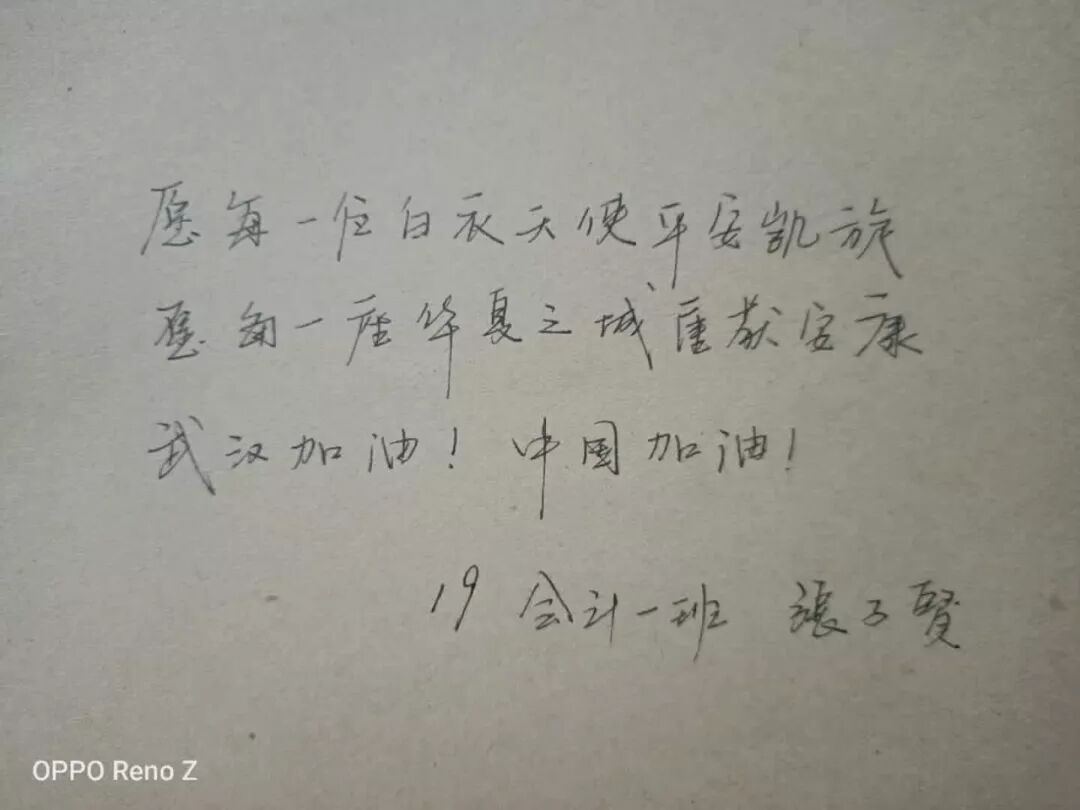 愿每一位白衣天使平安凯旋
愿每一座华夏之城重获安康
武汉加油！中国加油！
19会计一班 張子賢
OPPO Reno Z